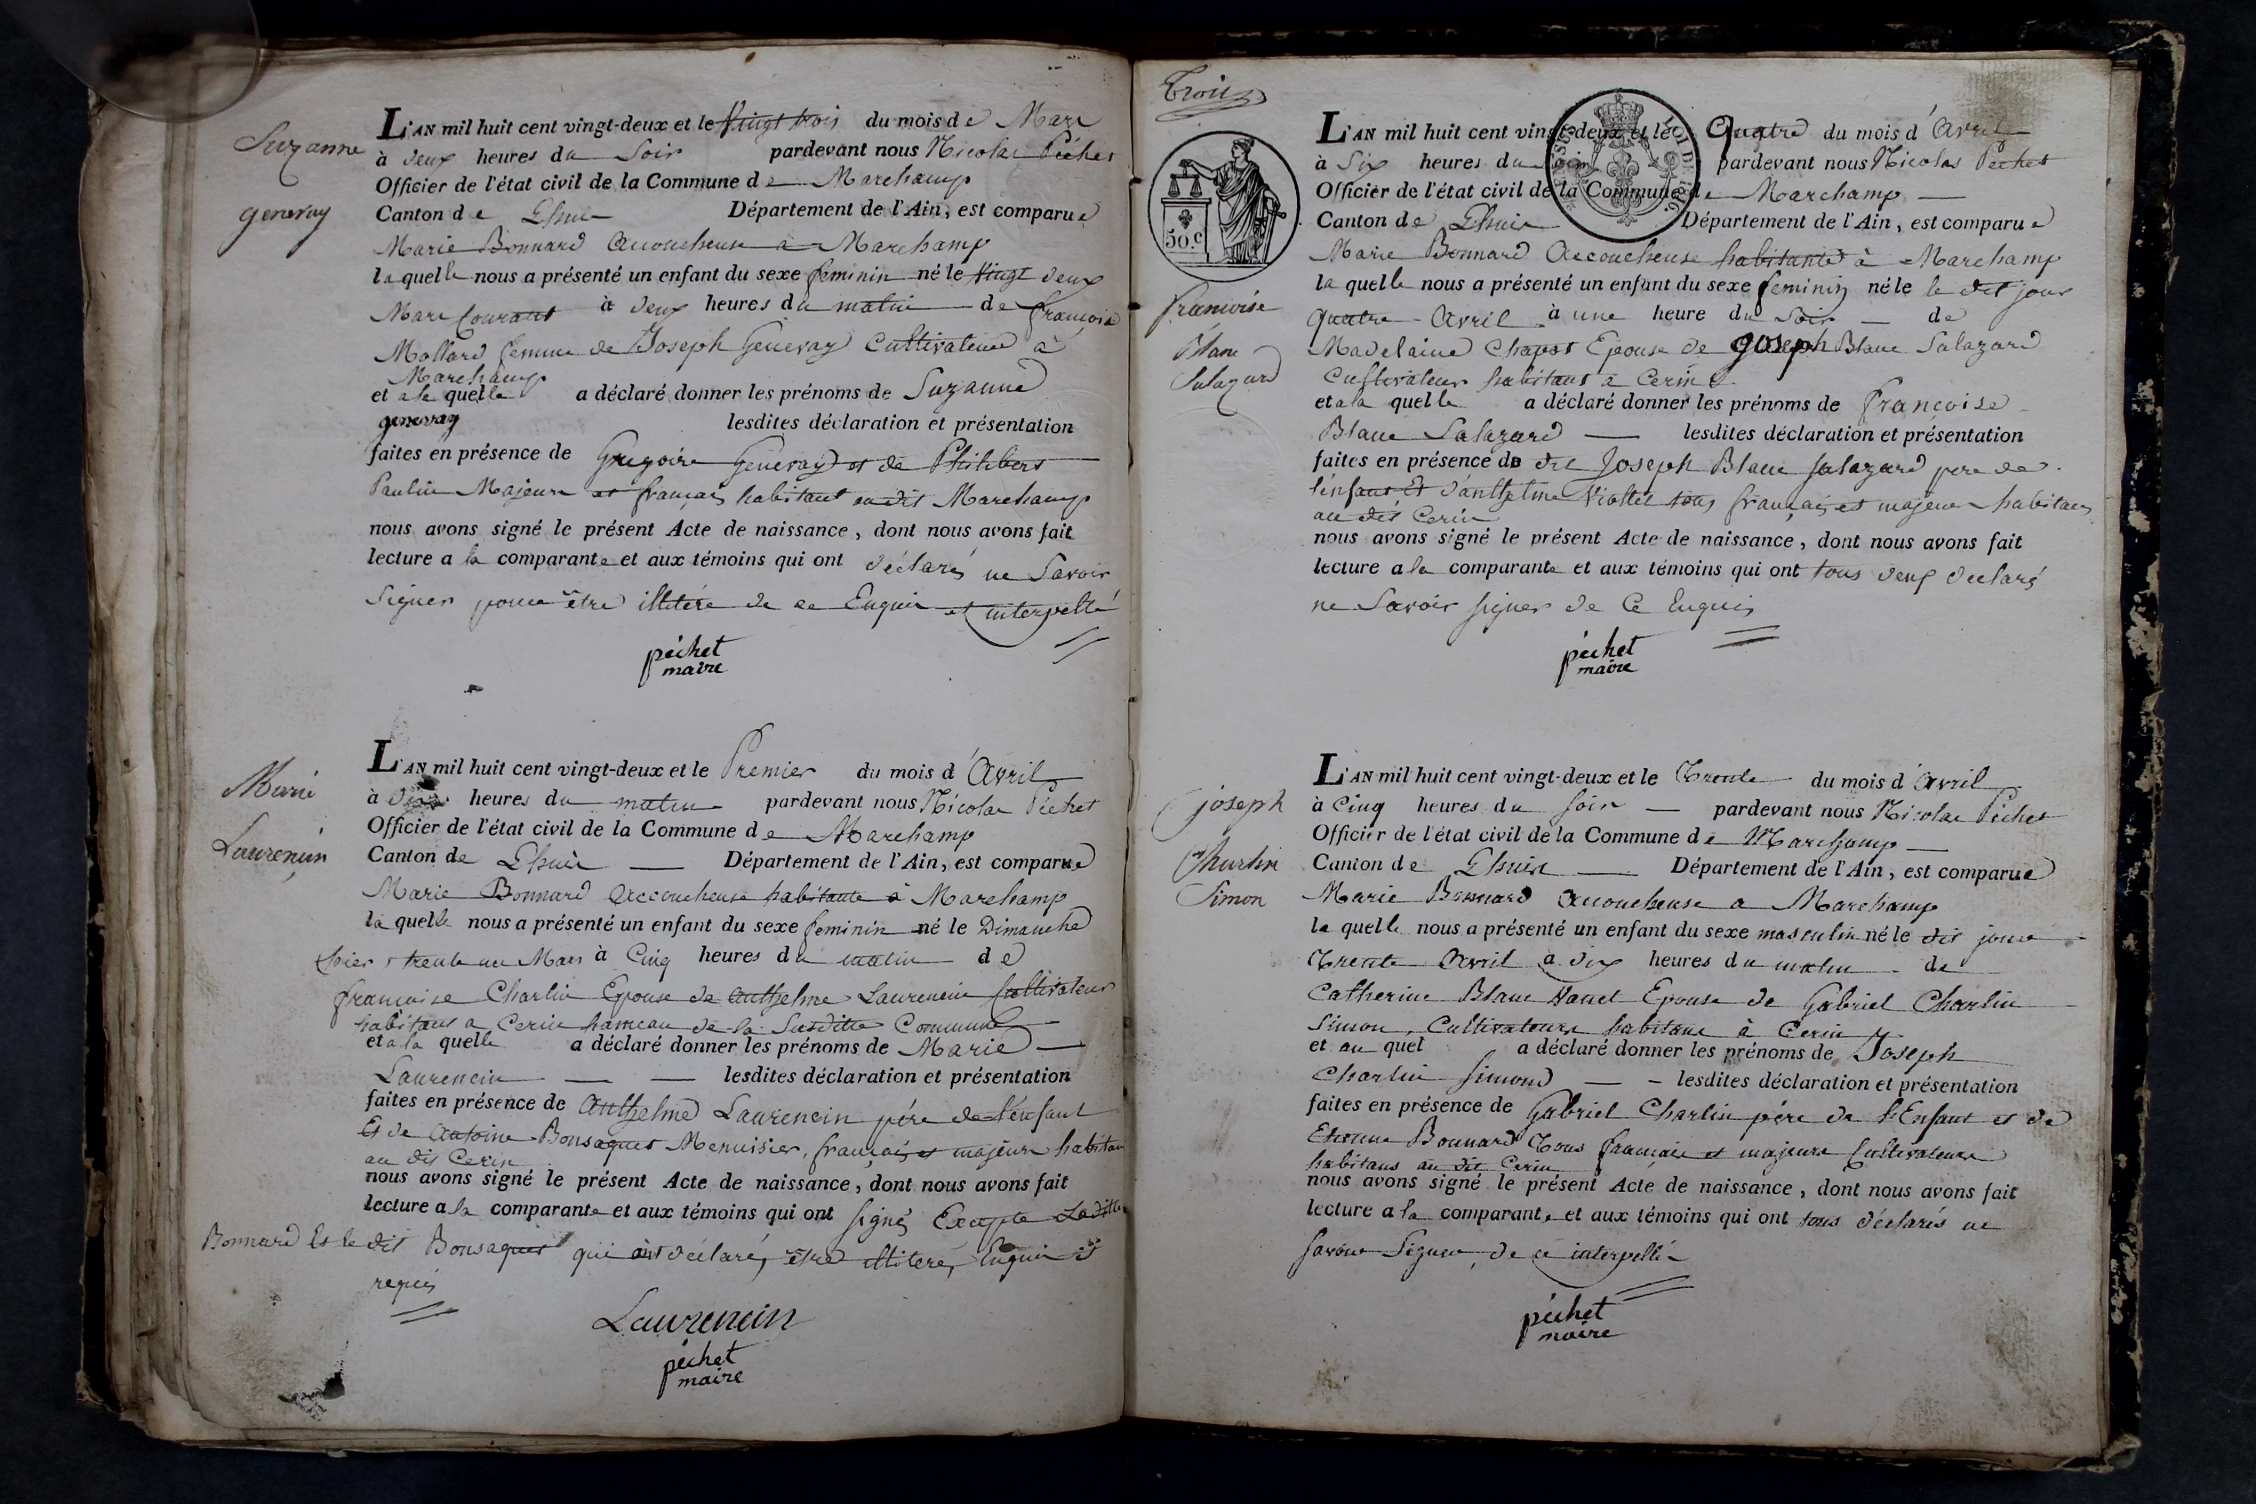 Suzanne
genevray
L'AN mil huit cent vingt-deux et le Vingt trois du mois de Mars
à deux heures du Soir pardevant nous Nicolas Péchet
Officier de l'état civil de la Commune de Marchamp
Canton de Lhuis Département de l'Ain, est comparue
Marie Bonnard Accoucheuse à Marchamp
laquelle nous a présenté un enfant du sexe feminin né le Vingt deux
Mars Courant à deux heures du matin de françoise
Mollard femme de Joseph Genevray Cultivateur à
Marchamp
et a la quelle a déclaré donner les prénoms de Suzanne
genevray lesdites déclaration et présentation
faites en présence de Gregoire Genevray et de Philibert
Paulin Majeurs et français habitant au dit Marchamp
nous avons signé le présent Acte de naissance, dont nous avons fait
lecture a la comparante et aux témoins qui ont déclarés ne Savoir
Signer pour être illitéré de ce Enquis et interpellé
péchet
maire
Marie
Laurencin
L'AN mil huit cent vingt-deux et le Premier du mois d'Avril
à heures du matin pardevant nous Nicolas Péchet
Officier de l'état civil de la Commune de Marchamp
Canton de Lhuis Département de l'Ain, est comparue
Marie Bonnard Accoucheuse habitante à Marchamp
la quelle nous a présenté un enfant du sexe feminin né le Dimanche
hier trente un Mars à Cinq heures du matin de
françoise Charlin Epouse de Anthelme Laurencin Cultivateur
habitans a Cerin hameau de la Susditte Commune
et a la quelle a déclaré donner les prénoms de Marie
Laurencin lesdites déclaration et présentation
faites en présence de Anthelme Laurencin pére de l'enfant
Et de Antoine Bonsaquet Menuisier, français et majeurs habitan
au dit Cerin
nous avons signé le présent Acte de naissance, dont nous avons fait
lecture a la comparante et aux témoins qui ont signé Excepté Laditte
Bonnard Et le dit Bonsaquet qui ont déclaré, être illiteré, Enquis &
requis
Laurencin
péchet
maire
Trois
50.c
LOI DE 1816
francoise
Blanc
Salazard
L'AN mil huit cent vingt-deux et le Quatre du mois d'Avril
à Six heures du Soir pardevant nous Nicolas Péchet
Officier de l'état civil de la Commune de Marchamp
Canton de Lhuis Département de l'Ain, est comparue
Marie Bonnard Accoucheuse habitante à Marchamp
la quelle nous a présenté un enfant du sexe feminin né le le dit jour
quatre Avril à une heure du Soir de
Madelaine Chapot Epouse de Joseph Blanc Salazard
Cultivateur habitans a Cerin
et a la quelle a déclaré donner les prénoms de françoise
Blanc Salazard lesdites déclaration et présentation
faites en présence de dit Joseph Blanc Salazard pere de
l'enfant Et d'anthelme Viollet tous français et majeur habitans
au dit Cerin
nous avons signé le présent Acte de naissance, dont nous avons fait
lecture a la comparante et aux témoins qui ont tous deux déclaré
ne Savoir signer de Ce Enquis
péchet
maire
joseph
Charlin
Simon
L'AN mil huit cent vingt-deux et le Trente du mois d'avril
à Cinq heures du Soir pardevant nous Nicolas Péchet
Officier de l'état civil de la Commune de Marchamp
Canton de Lhuis Département de l'Ain, est comparue
Marie Bonnard accoucheuse a Marchamp
la quelle nous a présenté un enfant du sexe masculin né le dit jour
Trente Avril à dix heures du matin de
Catherine Blanc Epouse de Gabriel Charlin
Simon, Cultivateurs habitans à Cerin
et au quel a déclaré donner les prénoms de Joseph
Charlin Simond lesdites déclaration et présentation
faites en présence de Gabriel Charlin pére de l'Enfant et de
Etienne Bonnard Tous français et majeurs Cultivateurs
habitans au dit Cerin
nous avons signé le présent Acte de naissance, dont nous avons fait
lecture a la comparante et aux témoins qui ont tous déclarés ne
Savoir Signer de ce interpellé
péchet
maire